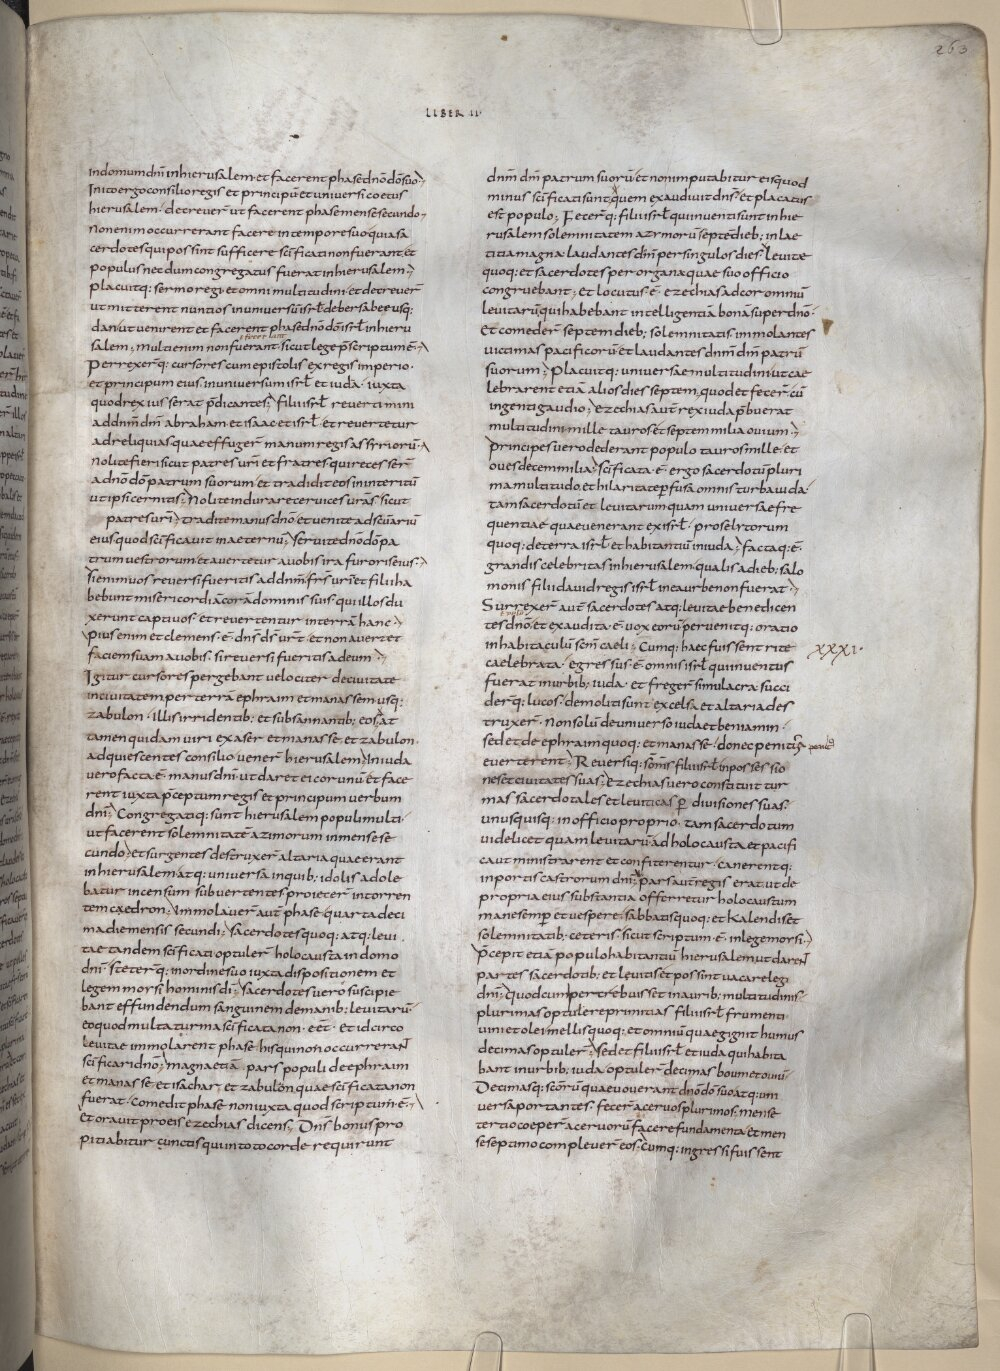 263
LIBER II
indomum dn̄i inhierusalem et facerent phase dn̄o dō isr̄l
Inito ergo consilio regis et principū et universi coetus
hierusalem decreuer̄ ut facerent phase mense secundo
Non enim occurrerant facere in tempore suo quia sa
cerdotes qui possint sufficere sc̄ificati non fuerant et
populus necdum congregatus fuerat in hierusalem
Placuitq: sermo regi et omni multitudini et decreuer̄
ut mitterent nuntios inuniuersū isr̄l debersabee usq:
dan ut uenirent et facerent phase dn̄o dō isr̄l in hieru
salem; multi enim non fuerant sicut lege p̄scriptum ē
Perrexer̄q: cursores cum epistolis ex regis imperio
et principum eius inuniuersum isr̄l et iuda iuxta
quod rex iusserat p̄dicantes; filii isr̄l reuertimini
ad dn̄m dm̄ abraham et isaac et isr̄l et reuertetur
ad reliquias quae effuger̄ manum regis assyriorū
Nolite fieri sicut patres ur̄i et fratres qui recesser̄
a dn̄o dō patrum suorum et tradidit eos in interitū
ut ipsi cernitis; Nolite indurare ceruices ur̄as sicut
patres ur̄i; tradite manus dn̄o et uenite ad sc̄uariū
eius quod sc̄ificauit in aeternū; seruite dn̄o dō pa
trum uestrorum et auertetur a uobis ira furoris eius
Si enim uos reuersi fueritis ad dn̄m fr̄s ur̄i et filii ha
bebunt misericordiā corā dominis suis qui illos du
xerunt captiuos et reuertentur in terrā hanc
Pius enim et clemens ē dn̄s ds̄ ur̄ et non auertet
faciem suam a uobis si reuersi fueritis ad eum
Igitur cursores pergebant uelociter de ciuitate
in ciuitatem per terrā ephraim et manasse usq:
zabulon illis irridentib; et subsannantib; eos at
tamen quidam uiri ex aser et manasse et zabulon
adquiescentes consilio uener̄ hierusalem; In iuda
uero facta ē manus dn̄i ut daret ei cor unū et face
rent iuxta p̄ceptum regis et principum uerbum
dn̄i; Congregatiq: sunt hierusalem populi multi
ut facerent solemnitatē azimorum in mense se
cundo; et surgentes destruxer̄ altaria quae erant
in hierusalem atq: uniuersa in quib; idolis adole
batur incensum subuertentes proiecer̄ in torren
tem caedron; Immolauer̄ aut̄ phase quartadeci
ma die mensis secundi; sacerdotes quoq: atq: leui
tae tandem sc̄ificati optuler̄ holocausta in domo
dn̄i steter̄q: in ordine suo iuxta dispositionem et
legem morsi hominis dī; sacerdotes uero suscipie
bant effundendum sanguinem de manib; leuitarū
eo quod multa turma sc̄ificata non eēt et idcirco
leuitae immolarent phase his qui non occurrerant
sc̄ificari dn̄o; magna etiā pars populi de ephraim
et manasse et isachar et zabulon quae sc̄ificata non
fuerat comedit phase non iuxta quod scriptum ē
Et orauit pro eis ezechias dicens; Dn̄s bonus pro
pitiabitur cunctis qui in toto corde requirunt
dn̄m dm̄ patrum suorū et non imputabitur eis quod
minus sc̄ificati sunt quem exaudiuit dn̄s et placatus
est populo; Fecer̄q: filii isr̄l qui inuenti sunt in hie
rusalem solemnitatem azymorū septē dieb; in lae
titia magna laudantes dn̄m per singulos dies leuitae
quoq: et sacerdotes per organa quae suo officio
congruebant; Et locutus ē ezechias ad cor omniū
leuitarū qui habebant intelligentiā bonā super dn̄o
Et comeder̄ septem dieb; solemnitatis immolantes
uictimas pacificorū et laudantes dn̄m dm̄ patrū
suorum; Placuitq: uniuersae multitudini ut cae
lebrarent etiā alios dies septem quod et fecer̄ cū
ingenti gaudio; Ezechias aut̄ rex iuda p̄buerat
multitudini mille tauros et septem milia ouium
Principes uero dederant populo tauros mille et
oues decem milia; sc̄ificata ē ergo sacerdotū pluri
ma multitudo et hilaritate p̱fusa omnis turba iuda
tam sacerdotū et leuitarum quam uniuersae fre
quentiae quae uenerant ex isr̄l proselytorum
quoq: de terra isr̄l et habitantiū in iuda; factaq: ē
grandis celebritas in hierusalem qualis a dieb; salo
monis filii dauid regis isr̄l in ea urbe non fuerat
Surrexer̄ aut̄ sacerdotes atq: leuitae benedicen
tes dn̄o et exaudita ē uox eorū peruenitq: oratio
in habitaculū sc̄m caeli; Cumq: haec fuissent rite
XXXI
caelebrata egressus ē omnis isr̄l qui inuentus
fuerat in urbib; iuda et freger̄ simulacra succi
der̄q: lucos demoliti sunt excelsa et altaria des
truxer̄ Non solū de uniuerso iuda et beniamin
sed et de ephraim quoq: et manasse donec penitus
euerterent; Reuersiq: sunt om̄s filii isr̄l in possessio
nes et ciuitates suas; Ezechias uero constituit tur
mas sacerdotales et leuiticas p̱ diuisiones suas
unusquisq: in officio proprio tam sacerdotum
uidelicet quam leuitarū ad holocausta et pacifi
ca ut ministrarent et confiterentur canerentq:
in portis castrorum dn̄i; pars aut̄ regis erat ut de
propria eius substantia offerretur holocaustum
mane semp̱ et uespere sabbatis quoq: et Kalendis et
solemnitatib; ceteris sicut scriptum ē in lege morsi
P̄cepit etiā populo habitantiū hierusalem ut darent
partes sacerdotib; et leuitis et possint uacare legi
dn̄i; quod cum percrebuisset in aurib; multitudinis
plurimas optulere primitias filii isr̄l frumenti
uini et olei mellis quoq: et omniū quae gignit humus
decimas optuler̄; sed et filii isr̄l et iuda qui habita
bant in urbib; iuda optuler̄ decimas boum et ouiū
Decimasq: sc̄orū quae uouerant dn̄o dō suo atq: uni
uersa portantes fecer̄ aceruos plurimos mense
tertio coeper̄ aceruorū facere fundamenta et men
se septimo compleuer̄ eos; Cumq: ingressi fuissent